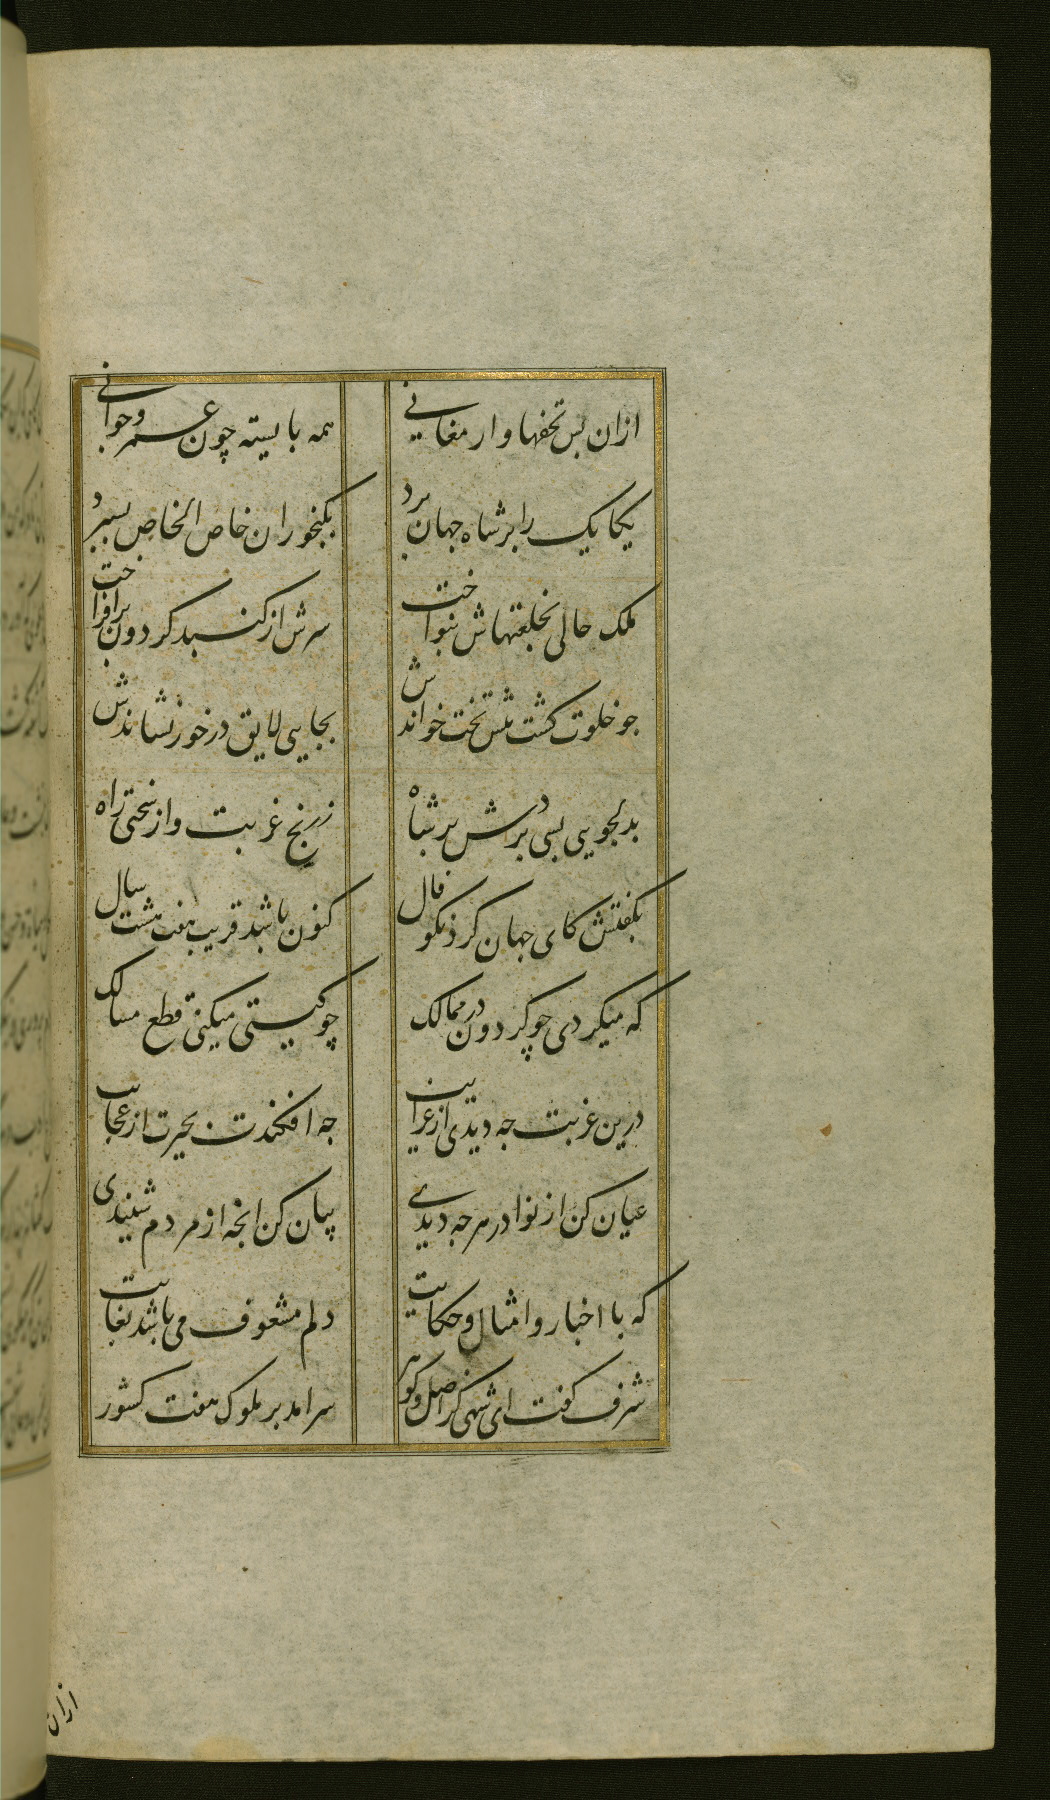 ازان بس تحفها و ارمغانی همه بایسته چون عمر و جوانی
یکایک را بر شاه جهان برد بکنجوران خاص الخاص بسپرد
ملک حالی بخلعتهاش بنواخت سرش از کنبد کردون برافراخت
جو خلوت کشت بیش تخت خواندش بجایی لایق در خور نشاندش
بدلجویی بسی پرسش برش شاه ز رنج غربت و از سختی راه
بکفتش کای جهان کرد نکو فال کنون باشد قریب هفت هشت سال
که میکردی جو کردون در ممالک چو کیستی میکنی قطع مسالک
درین غربت جه دیدی از غرایب جه افکندت بحیرت از عجایب
عیان کن از نوادر هرجه دیدی بیان کن انجه از مردم شنیدی
که با اخبار و امثال و حکایت دلم مشعوف می باشد بغایت
شرف کفت ای شهی کز اصل و کوهر سرامد بر ملوک هفت کشور
ازان